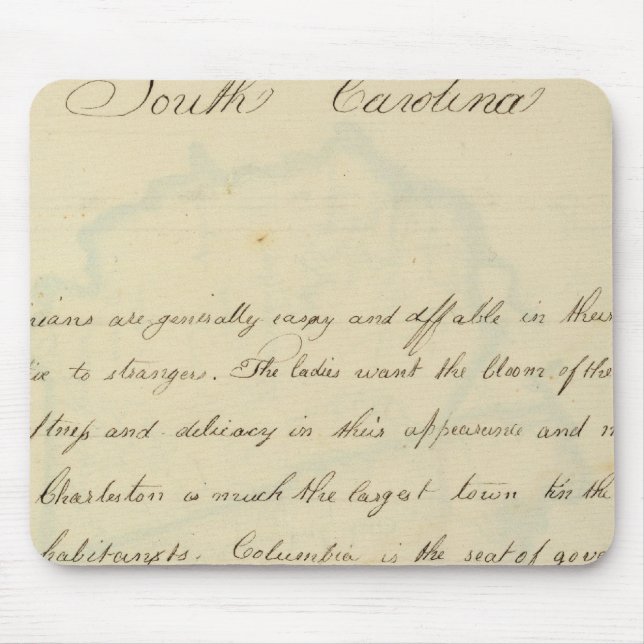 South Carolina
nians are generally easy and affable in their
tive to strangers. The ladies want the bloom of the
ftness and delicacy in their appearance and m
Charleston is much the largest town in the
habitants. Columbia is the seat of gove